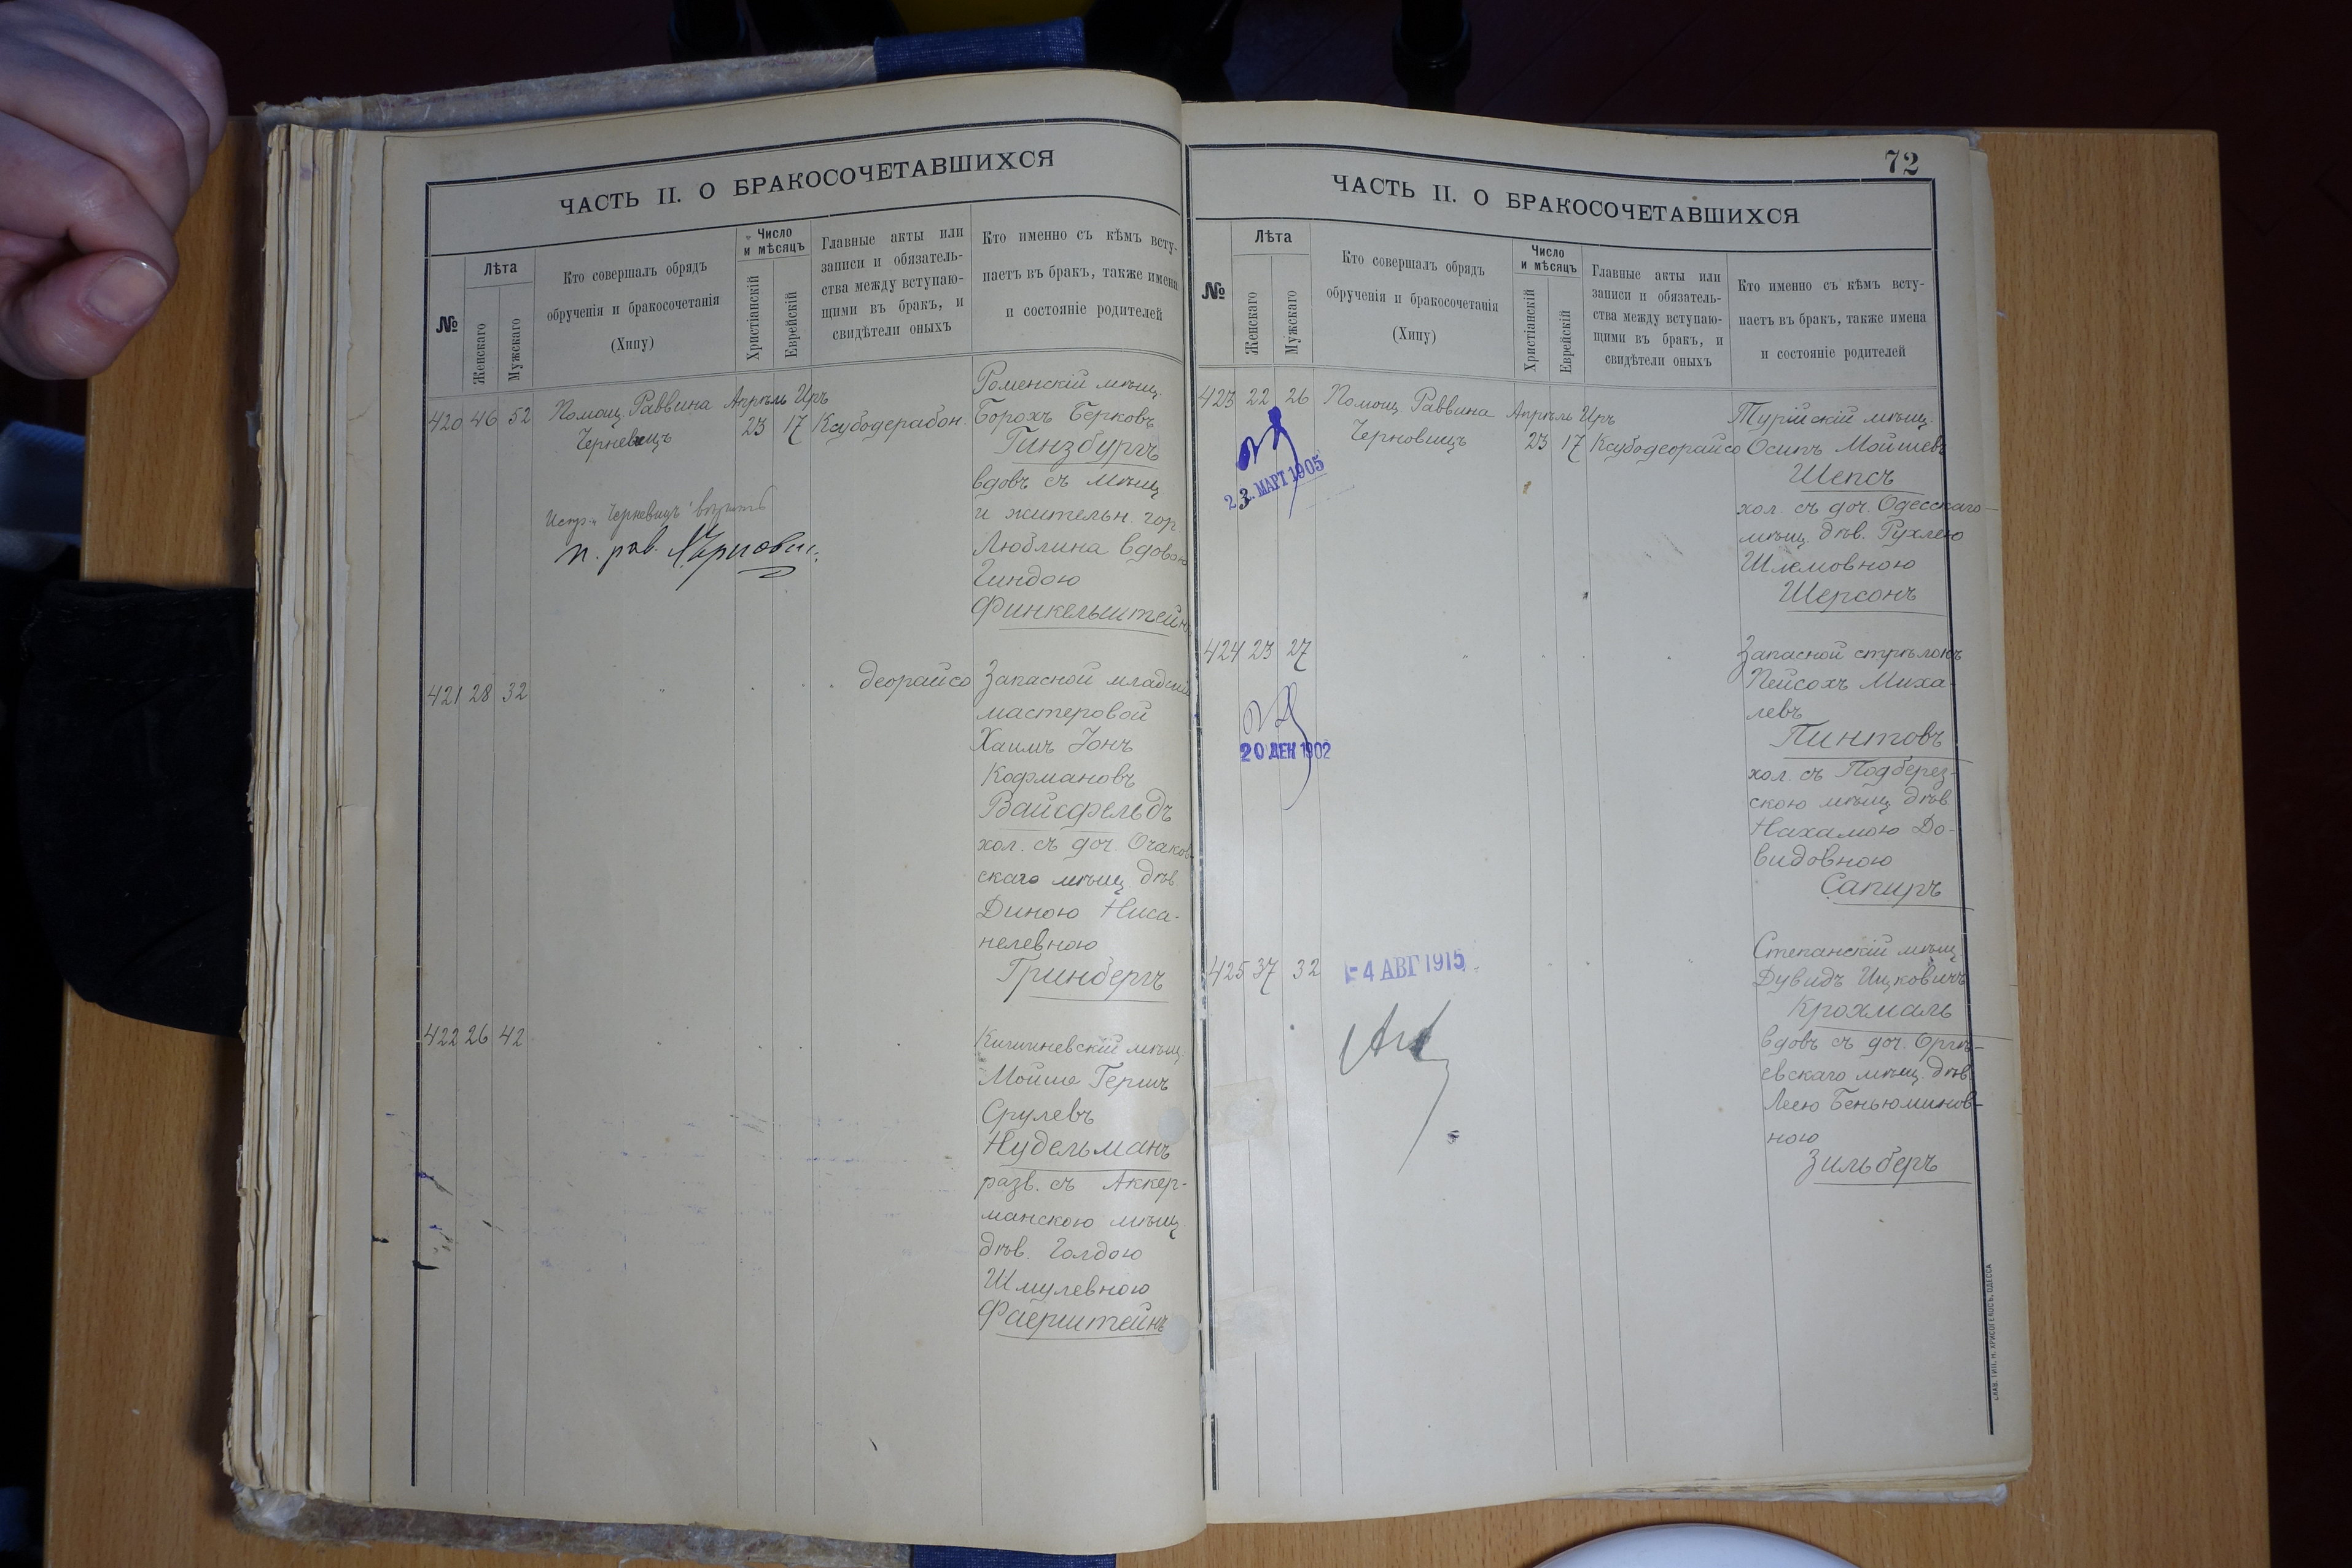 ЧАСТЬ II. О БРАКОСОЧЕТАВШИХСЯ
№
Лѣта
Женскаго
Мужскаго
Кто совершалъ обрядъ
обрученія и бракосочетанія
(Хипу)
Число
и мѣсяцъ
Христіанскій
Еврейскій
Главные акты или
записи и обязатель-
ства между вступаю-
щими въ бракъ, и
свидѣтели оныхъ
Кто именно съ кѣмъ всту-
паетъ въ бракъ, также имена
и состояніе родителей
420 46 52 Помощ. Раввина Апрѣль Иръ
Черневецъ 23 17 Ксубодерабон.
Роменскій мѣщ.
Борохъ Берковъ
Гинзбургъ
вдовъ съ мѣщ.
и жительн. гор.
Люблина вдовою
Гиндою
Финкельштейнъ
Испр. "Черневицъ" вѣрить
п. рав.
421 28 32 деорайсо
Запасной младшій
мастеровой
Хаимъ Іонъ
Кофмановъ
Вайсфельдъ
хол. съ доч. Очаков-
скаго мѣщ. дѣв.
Диною Ниса-
нелевною
Гринбергъ
422 26 42
Кишиневскій мѣщ.
Мойше Гершъ
Срулевъ
Нудельманъ
разв. съ Аккер-
манскою мѣщ.
дѣв. Голдою
Шмулевною
Фаерштейнъ
72
ЧАСТЬ II. О БРАКОСОЧЕТАВШИХСЯ
№
Лѣта
Женскаго
Мужскаго
Кто совершалъ обрядъ
обрученія и бракосочетанія
(Хипу)
Число
и мѣсяцъ
Христіанскій
Еврейскій
Главные акты или
записи и обязатель-
ства между вступаю-
щими въ бракъ, и
свидѣтели оныхъ
Кто именно съ кѣмъ всту-
паетъ въ бракъ, также имена
и состояніе родителей
423 22 26 Помощ. Раввина Апрѣль Иръ
Черновицъ 23 17 Ксубодеорайсо
23. МАРТ 1905
Турійскій мѣщ.
Осипъ Мойшевъ
Шепсъ
хол. съ доч. Одесскаго
мѣщ. дѣв. Рухлею
Шлемовною
Шерсонъ
424 23 27
20 ДЕК 1902
Запасной стрѣлокъ
Пейсохъ Миха-
левъ
Пинтовъ
хол. съ Подберез-
скою мѣщ. дѣв.
Нахамою До-
видовною
Сапиръ
425 37 32
-4 АВГ 1915
Степанскій мѣщ.
Дувидъ Ицковичъ
Крохмаль
вдовъ съ доч. Оргѣ-
евскаго мѣщ. дѣв.
Леею Беньюминов-
ною
Зильберъ
СЛАВ. ТИП. Н. ХРИСОГЕЛОСЪ, ОДЕССА